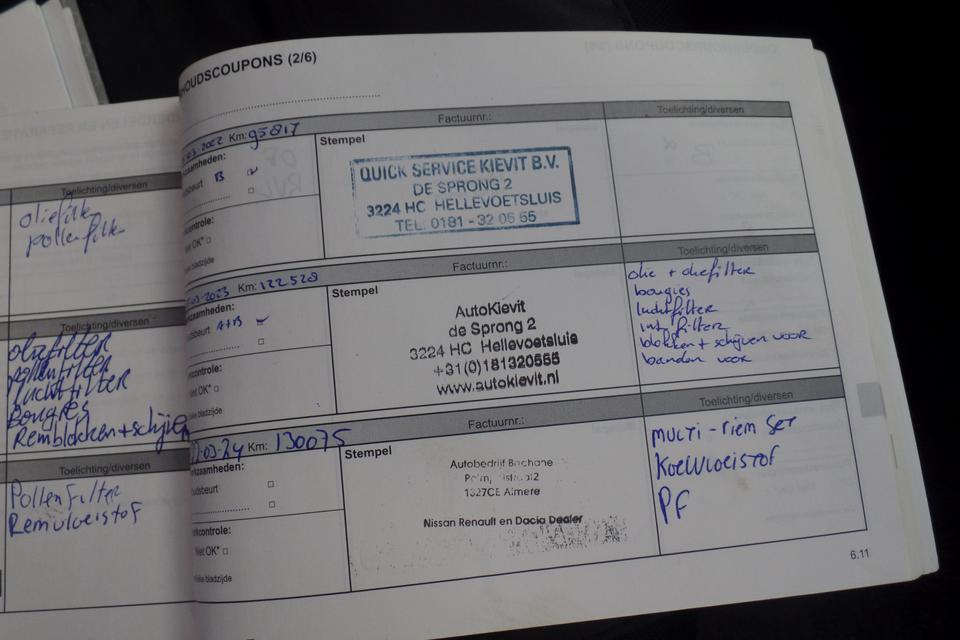 Toelichting/diversen
oliefilter
pollenfilter
Toelichting/diversen
oliefilter
pollenfilter
luchtfilter
Bougies
Remblokken + schijven
Toelichting/diversen
Pollenfilter
Remvloeistof
HOUDSCOUPONS (2/6)
Factuurnr.:
Toelichting/diversen
Km: 95817
Stempel
B
QUICK SERVICE KIEVIT B.V.
DE SPRONG 2
3224 HC HELLEVOETSLUIS
TEL. 0181 - 32 05 55
controle:
OK*
bladzijde
Factuurnr.:
Toelichting/diversen
03-2023 Km: 122528
Stempel
A+B
AutoKievit
de Sprong 2
3224 HC Hellevoetsluis
+31(0)181320555
www.autokievit.nl
olie + oliefilter
bougies
luchtfilter
int. filter
blokken + schijven voor
banden voor
controle:
OK*
bladzijde
Factuurnr.:
Toelichting/diversen
-03-24 Km: 130075
Stempel
Autobedrijf Bochane
1327CE Almere
Nissan Renault en Dacia Dealer
MULTI-riem SET
Koelvloeistof
PF
controle:
Niet OK*
bladzijde
6.11